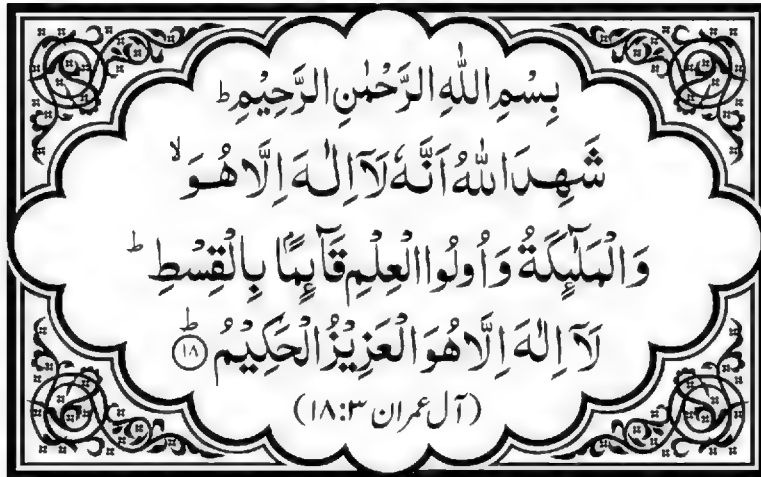 بِسْمِ اللّٰهِ الرَّحْمٰنِ الرَّحِيْمِ ؕ
شَهِدَ اللّٰهُ اَنَّهٗ لَاۤ اِلٰهَ اِلَّا هُوَ ۙ
وَالْمَلٰٓئِكَةُ وَاُولُوا الْعِلْمِ قَآئِمًۢا بِالْقِسْطِ ؕ
لَاۤ اِلٰهَ اِلَّا هُوَ الْعَزِيْزُ الْحَكِيْمُ ؕ ۱۸
(آل عمران ۱۸:۳)